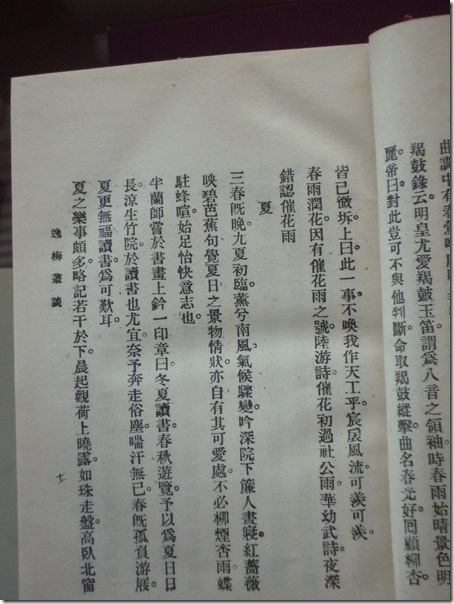 曲譜中有春鶯囀
羯鼓錄云。明皇尤愛羯鼓玉笛。謂爲八音之領袖。時春雨始晴。景色明
麗。帝曰。對此豈可不與他判斷。命取羯鼓縱擊。曲名春光好。回顧柳杏
皆已微坼。上曰。此一事不喚我作天工乎。宸扆風流。可羨可羨。
春雨潤花。因有催花雨之號。陸游詩。催花初過社公雨。華幼武詩。夜深
錯認催花雨
夏
三春旣晚。九夏初臨。薰兮南風。氣候驟變。吟深院下簾人晝寢。紅薔薇
映碧芭蕉句。覺夏日之景物情狀。亦自有其可愛處。不必柳煙杏雨。蝶
駐蜂喧。始足怡快意志也。
半蘭師嘗於書畫上鈐一印章曰。冬夏讀書。春秋遊覽。予以爲夏日日
長。涼生竹院。於讀書也尤宜。奈予奔走俗塵。喘汗無已。春旣孤負游屐。
夏更無福讀書。爲可歎耳。
夏之樂事頗多。略記若干於下。晨起觀荷上曉露。如珠走盤。高臥北窗
逸梅叢談